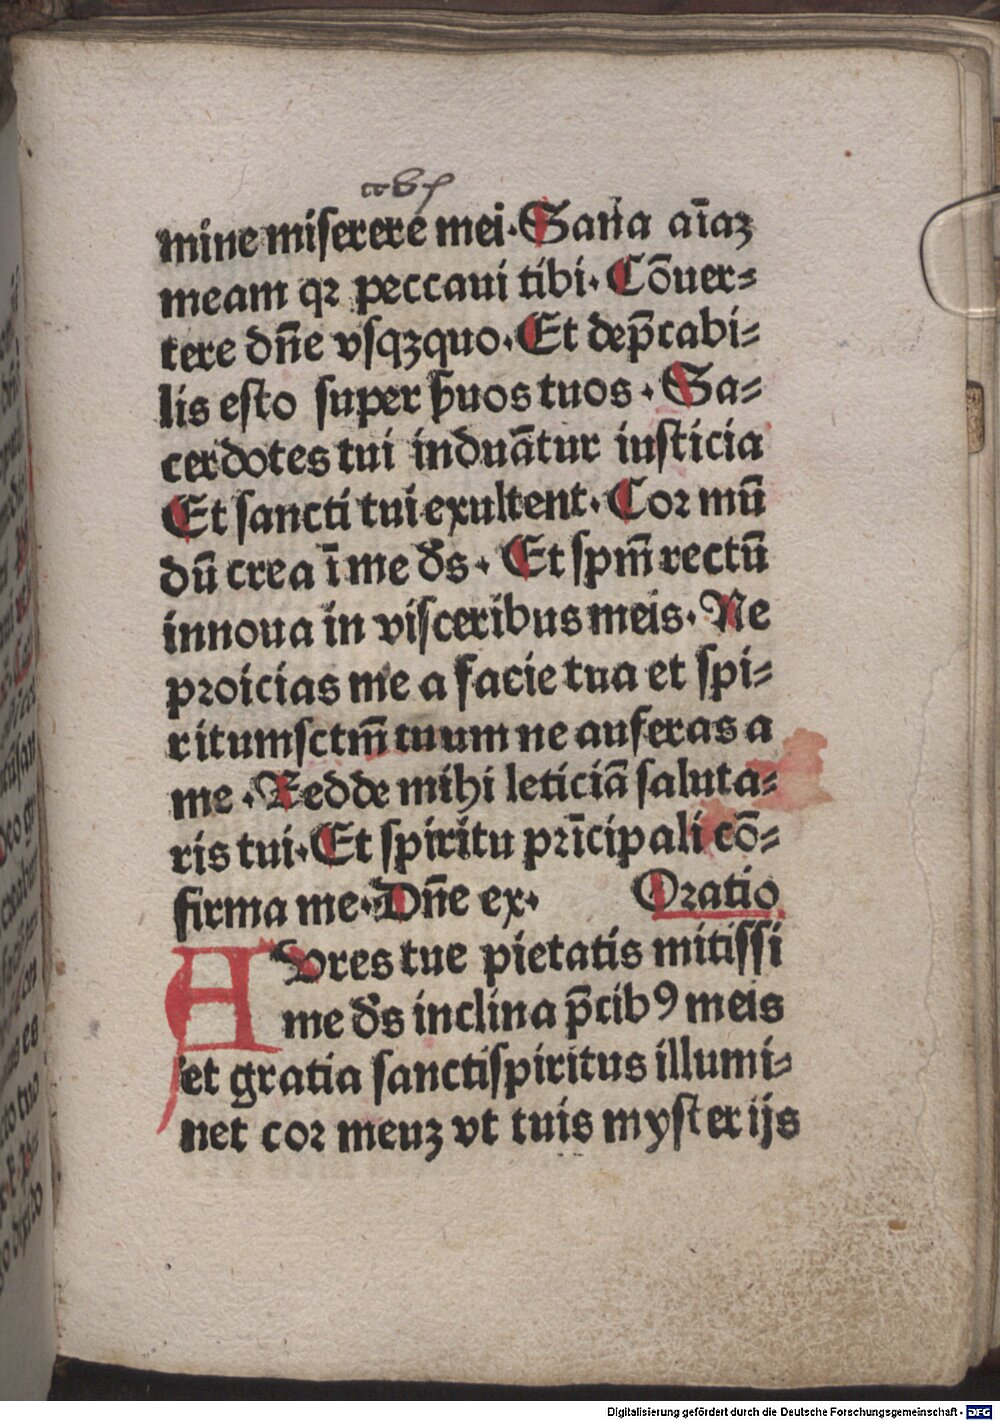 mine miserere mei. Sana aīaꝫ
meam qꝛ peccaui tibi. Cōuer⸗
tere dn̄e vsqꝫquo. Et dep̄cabi⸗
lis esto super ẜuos tuos. Sa⸗
cerdotes tui induātur iusticia
Et sancti tui exultent. Cor mū
dū crea ī me ds̄. Et spm̄ rectū
innoua in visceribus meis. Ne
proicias me a facie tua et spi⸗
ritumsctm̄ tuum ne auferas a
me. Redde mihi leticiā saluta⸗
ris tui. Et spiritu pn̄cipali cō⸗
firma me. Dn̄e ex. Oratio
AUres tue pietatis mitissi
me ds̄ inclina p̄cibꝰ meis
et gratia sanctispiritus illumi⸗
net cor meuꝫ vt tuis mysterijs
Digitalisierung gefördert durch die Deutsche Forschungsgemeinschaft - DFG